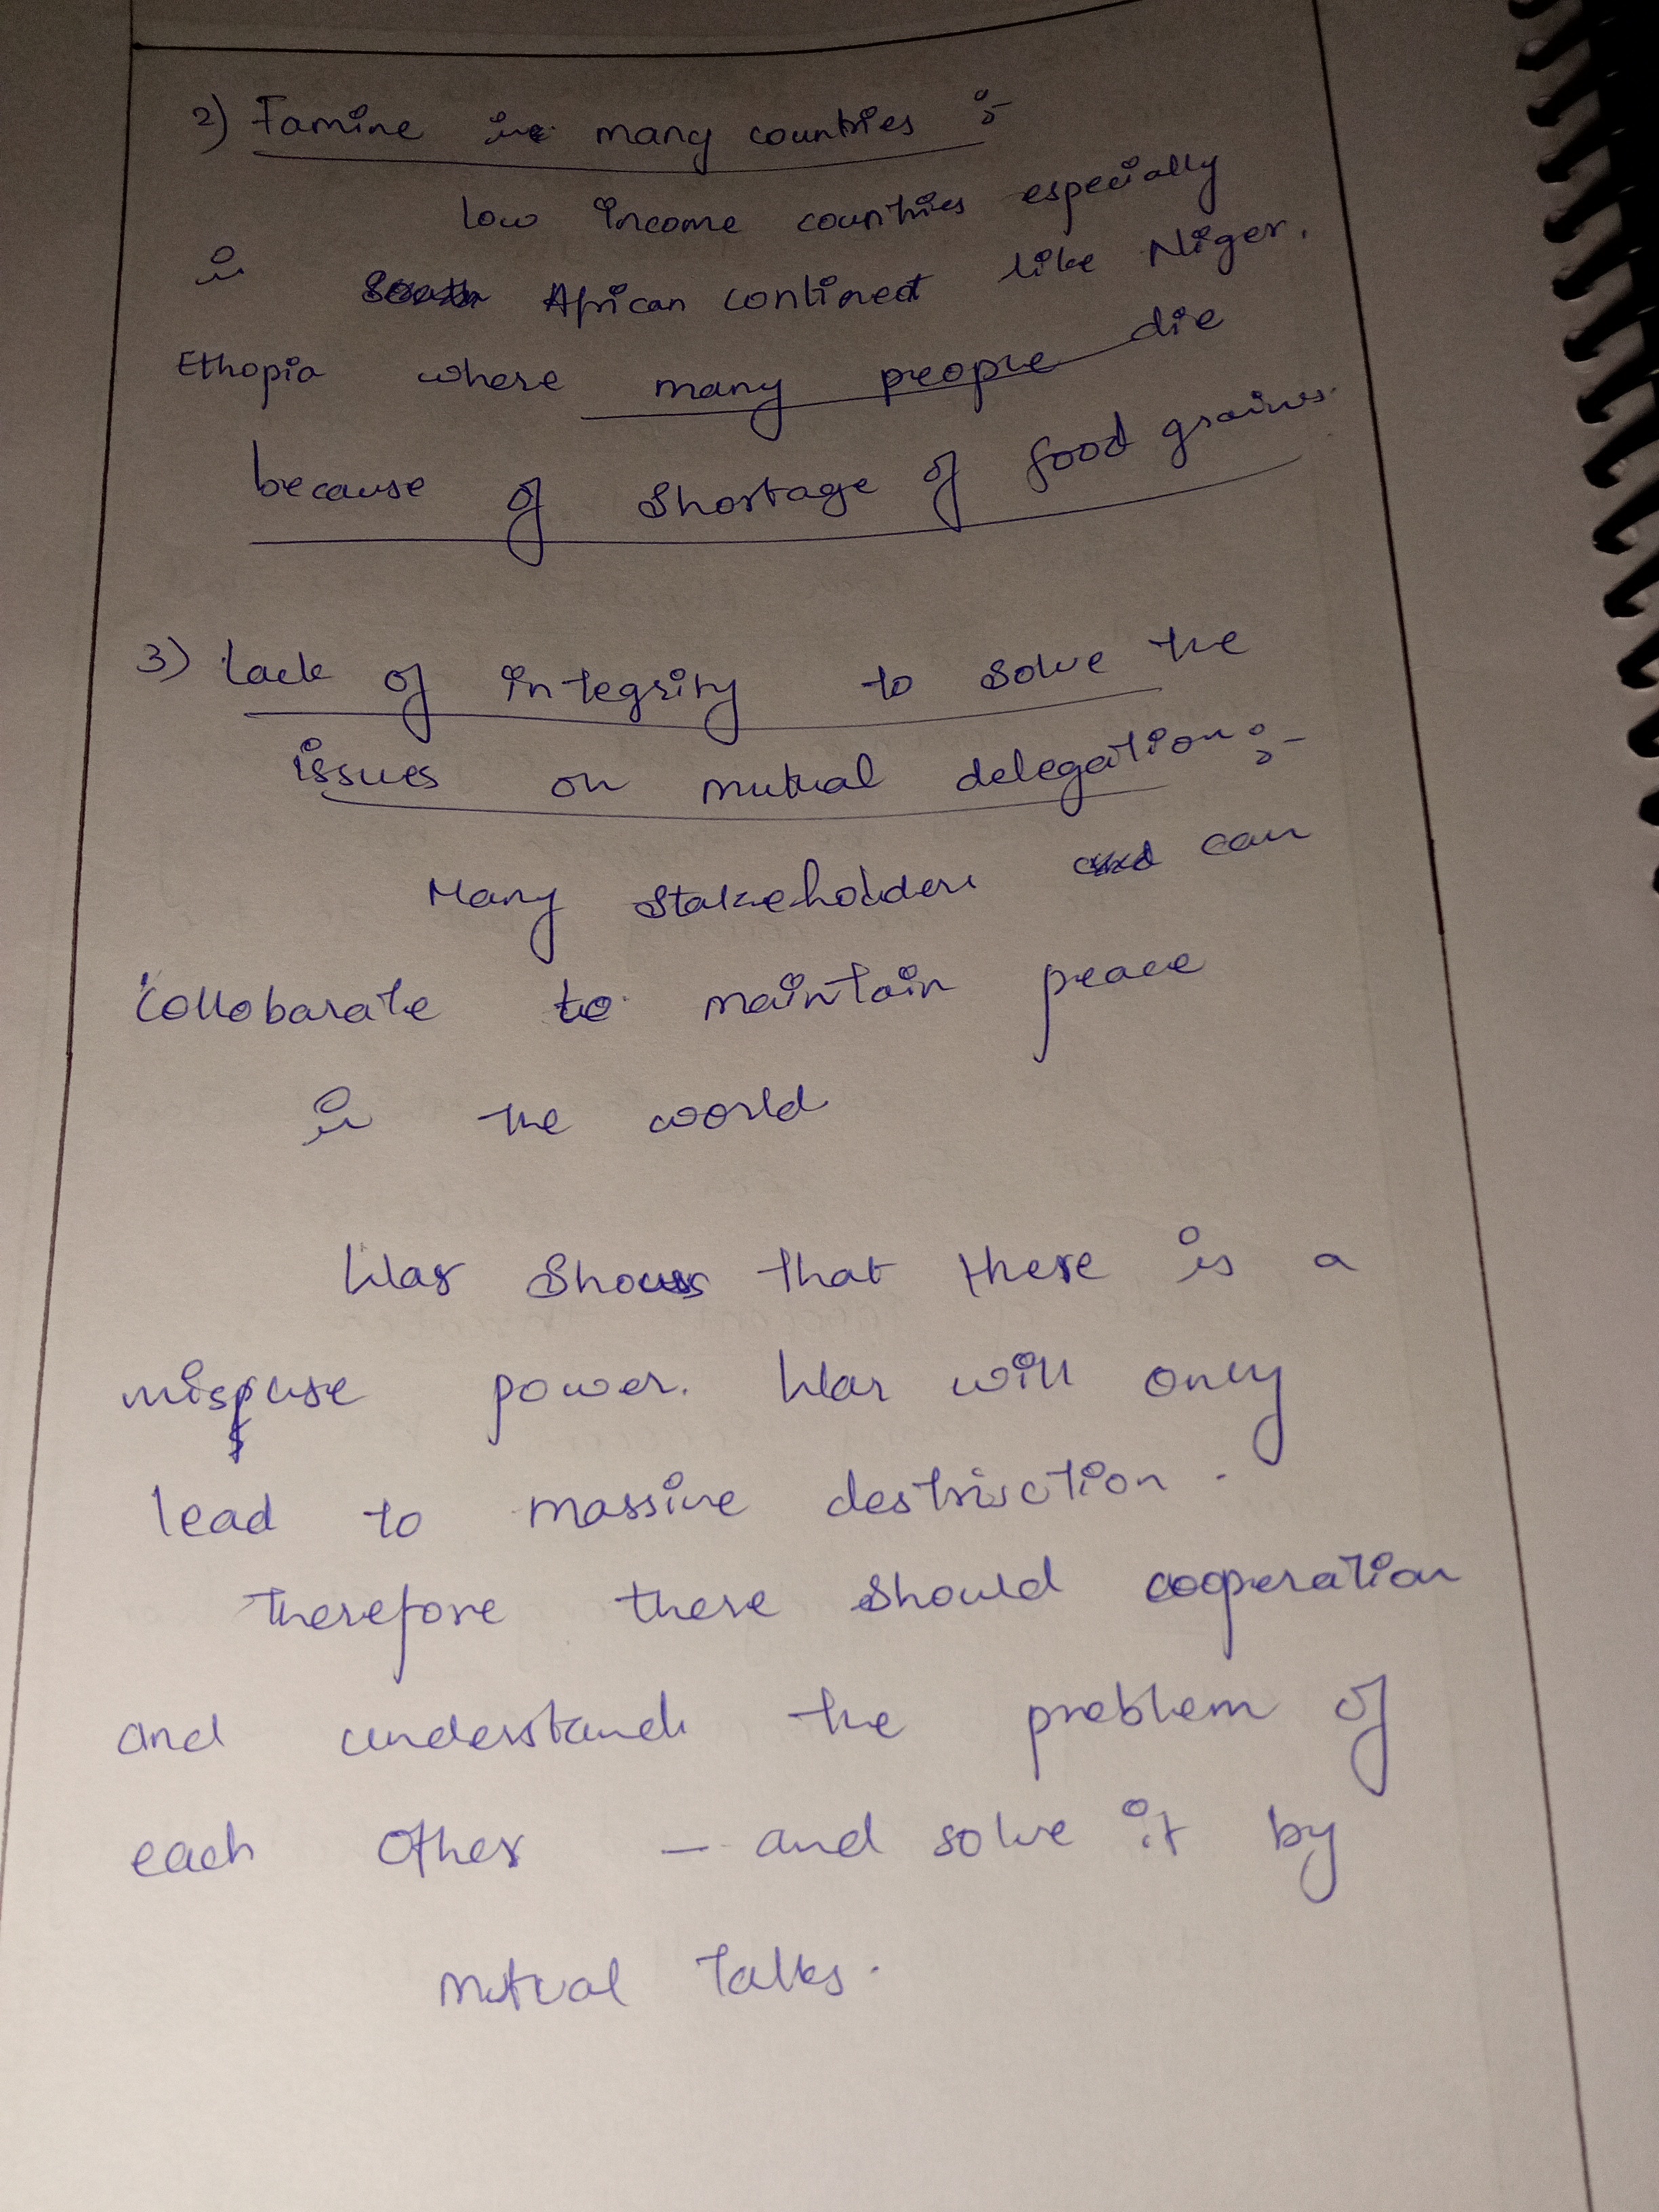 2) Famine in many countries :-
low income countries especially
in African continect like Niger,
Ethopia where many people die
because of shortage of food grains.
3) lack of integrity to solve the
issues on mutual delegation :-
Many stakeholders can
collobarate to maintain peace
in the world
War shows that there is a
misuse power. War will only
lead to massive destrisction.
Therefore there should cooperation
and understand the problem of
each other - and solve it by
mutual talks.